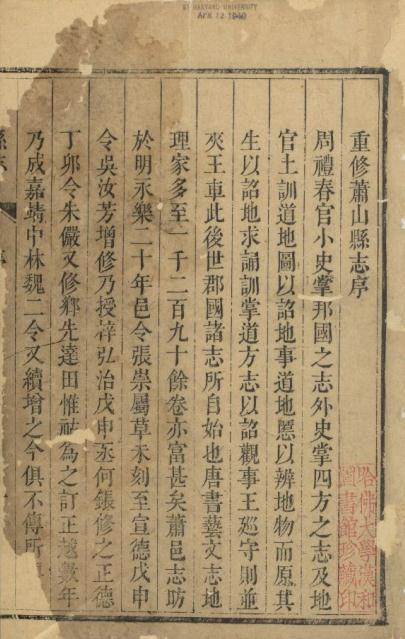 重修蕭山縣志序
周禮春官小史掌邦國之志外史掌四方之志及地
官土訓道地圖以詔地事道地慝以辨地物而原其
生以詔地求誦訓掌道方志以詔觀事王廵守則並
夾王車此後世郡國諸志所自始也唐書藝文志地
理家多至一千二百九十餘卷亦富甚矣蕭邑志昉
於明永樂二十年邑令張崇屬草未刻至宣德戊申
令吳汝芳增修乃授梓弘治戊申丞何鋹修之正德
丁卯令朱儼又修鄉先達田惟祜為之訂正越數年
乃成嘉靖中林魏二令又續增之今俱不傳所
縣志
序
HARVARD UNIVERSITY
APR 12 1940
哈佛大學漢和
圖書館珍藏印